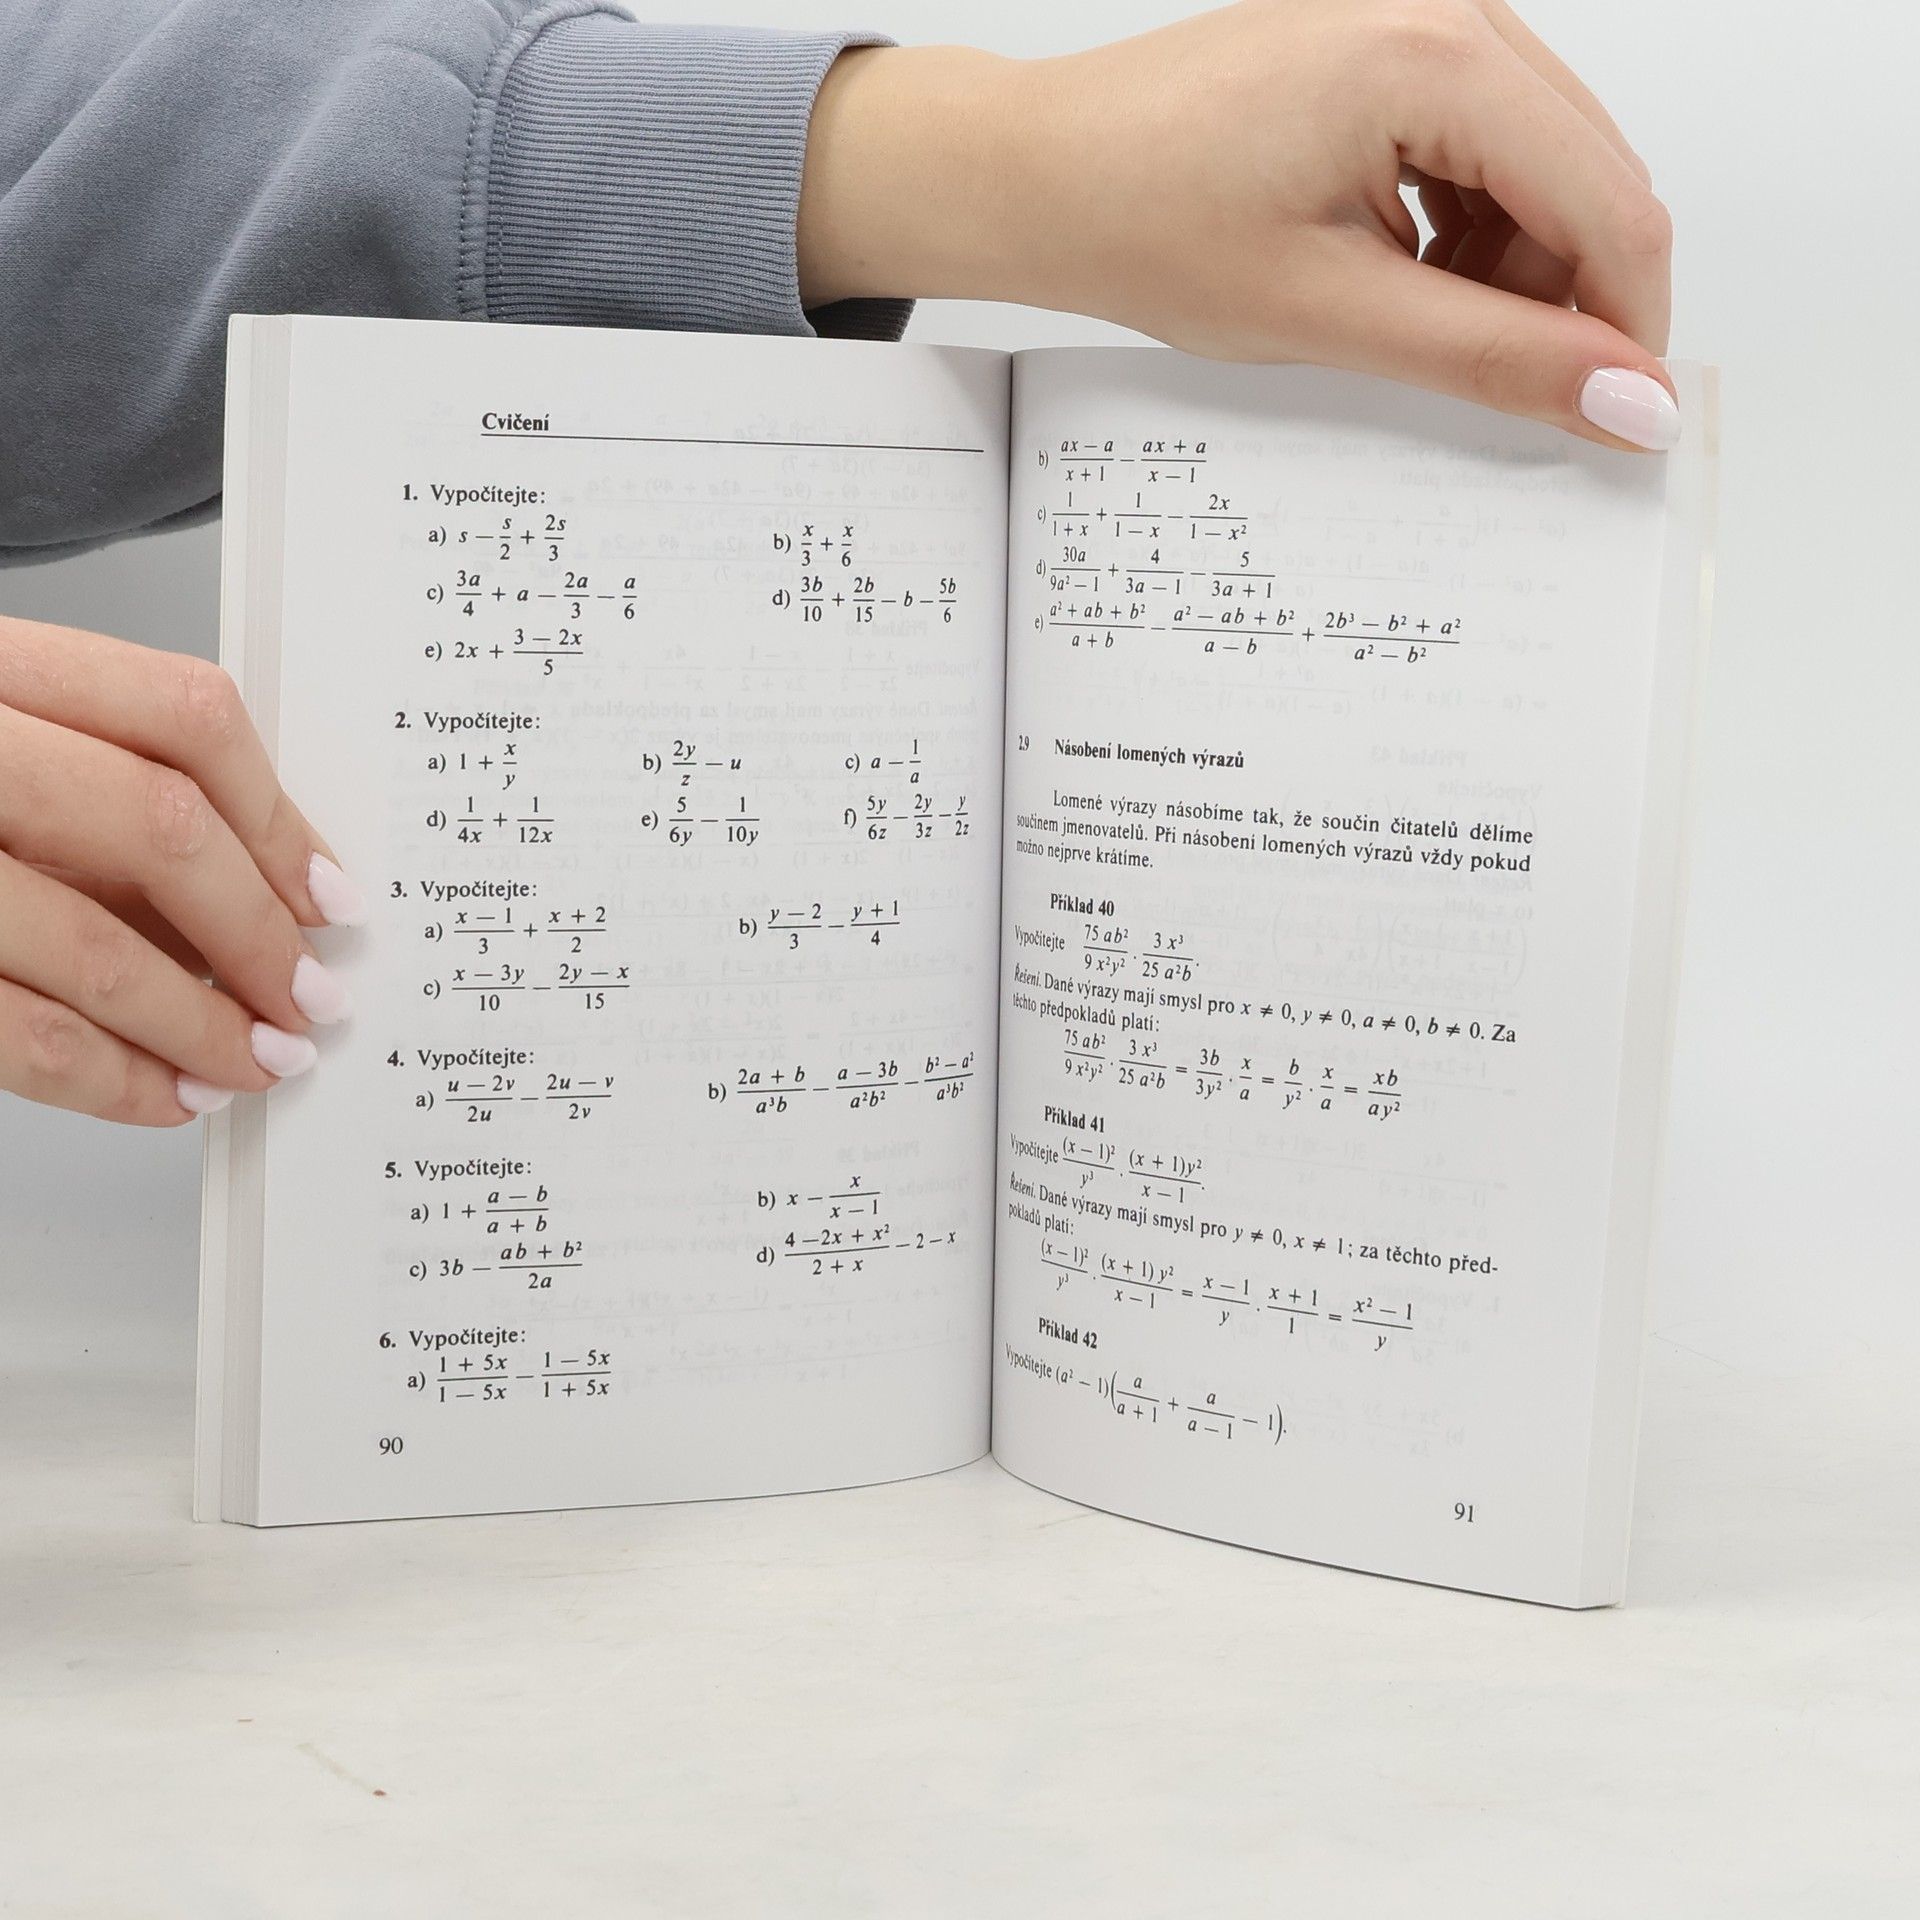 Cvičení
1. Vypočítejte:
a) s − s/2 + 2s/3 b) x/3 + x/6
c) 3a/4 + a − 2a/3 − a/6 d) 3b/10 + 2b/15 − b − 5b/6
e) 2x + (3 − 2x)/5
2. Vypočítejte:
a) 1 + x/y b) 2y/z − u c) a − 1/a
d) 1/4x + 1/12x e) 5/6y − 1/10y f) 5y/6z − 2y/3z − y/2z
3. Vypočítejte:
a) (x − 1)/3 + (x + 2)/2 b) (y − 2)/3 − (y + 1)/4
c) (x − 3y)/10 − (2y − x)/15
4. Vypočítejte:
a) (u − 2v)/2u − (2u − v)/2v b) (2a + b)/a³b − (a − 3b)/a²b² − (b² − a²)/a³b²
5. Vypočítejte:
a) 1 + (a − b)/(a + b) b) x − x/(x − 1)
c) 3b − (ab + b²)/2a d) (4 − 2x + x²)/(2 + x) − 2 − x
6. Vypočítejte:
a) (1 + 5x)/(1 − 5x) − (1 − 5x)/(1 + 5x)
90
b) (ax − a)/(x + 1) − (ax + a)/(x − 1)
c) 1/(1 + x) + 1/(1 − x) − 2x/(1 − x²)
d) 30a/(9a² − 1) + 4/(3a − 1) − 5/(3a + 1)
e) (a² + ab + b²)/(a + b) − (a² − ab + b²)/(a − b) + (2b³ − b² + a²)/(a² − b²)
2.9 Násobení lomených výrazů
Lomené výrazy násobíme tak, že součin čitatelů dělíme
součinem jmenovatelů. Při násobení lomených výrazů vždy pokud
možno nejprve krátíme.
Příklad 40
Vypočítejte 75 ab²/9 x²y² · 3 x³/25 a²b.
Řešení. Dané výrazy mají smysl pro x ≠ 0, y ≠ 0, a ≠ 0, b ≠ 0. Za
těchto předpokladů platí:
75 ab²/9 x²y² · 3 x³/25 a²b = 3b/3y² · x/a = b/y² · x/a = xb/ay²
Příklad 41
Vypočítejte (x − 1)²/y³ · (x + 1)y²/(x − 1).
Řešení. Dané výrazy mají smysl pro y ≠ 0, x ≠ 1; za těchto před-
pokladů platí:
(x − 1)²/y³ · (x + 1) y²/(x − 1) = (x − 1)/y · (x + 1)/1 = (x² − 1)/y
Příklad 42
Vypočítejte (a² − 1)(a/(a + 1) + a/(a − 1) − 1).
91